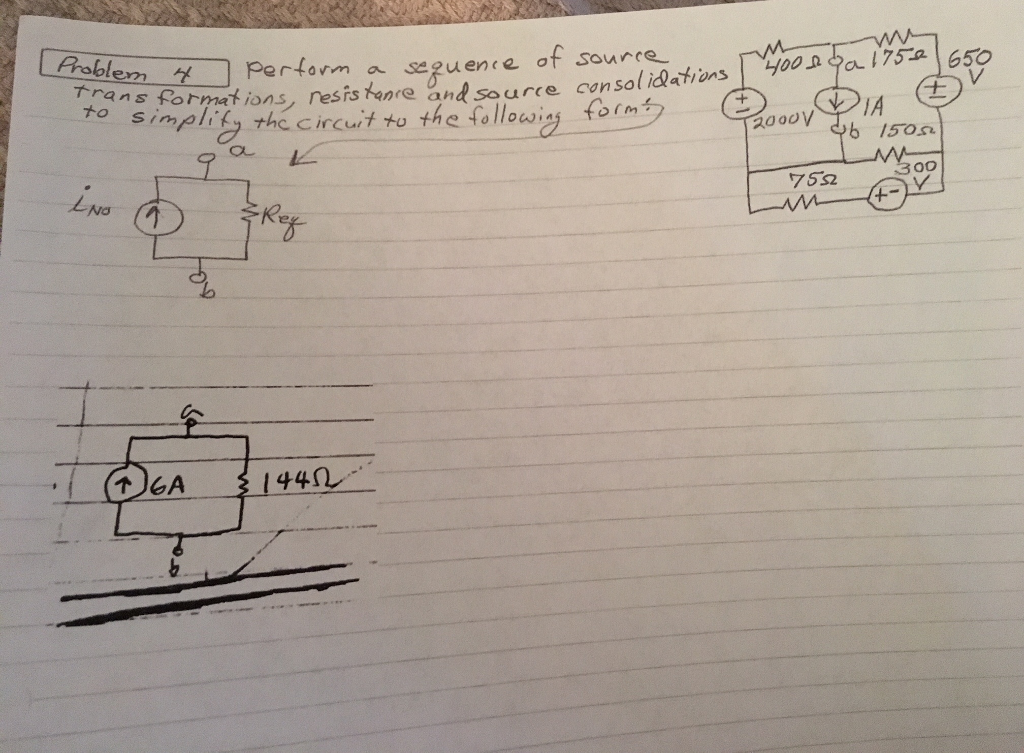 Problem 4 perform a sequence of source
transformations, resistance and source consolidations
to simplify the circuit to the following form:
a
iNO
Req
b
400Ω a 175Ω
650
V
2000V
1A
b 150Ω
75Ω
300
V
+ -
a
6A
144Ω
b